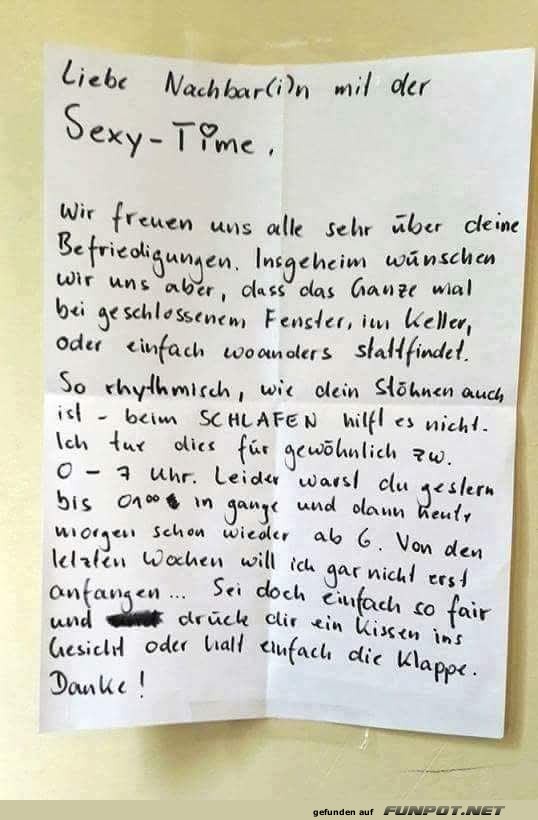 Liebe Nachbar(i)n mit der
Sexy-Time.
Wir freuen uns alle sehr über deine
Befriedigungen. Insgeheim wünschen
wir uns aber, dass das Ganze mal
bei geschlossenem Fenster, im Keller,
oder einfach woanders stattfindet.
So rhythmisch, wie dein Stöhnen auch
ist - beim SCHLAFEN hilft es nicht.
Ich tue dies für gewöhnlich zw.
0 - 7 Uhr. Leider warst du gestern
bis 01⁰⁰ in gange und dann heute
morgen schon wieder ab 6. Von den
letzten Wochen will ich gar nicht erst
anfangen... Sei doch einfach so fair
und drücke dir ein Kissen ins
Gesicht oder halt einfach die Klappe.
Danke!
gefunden auf FUNPOT.NET